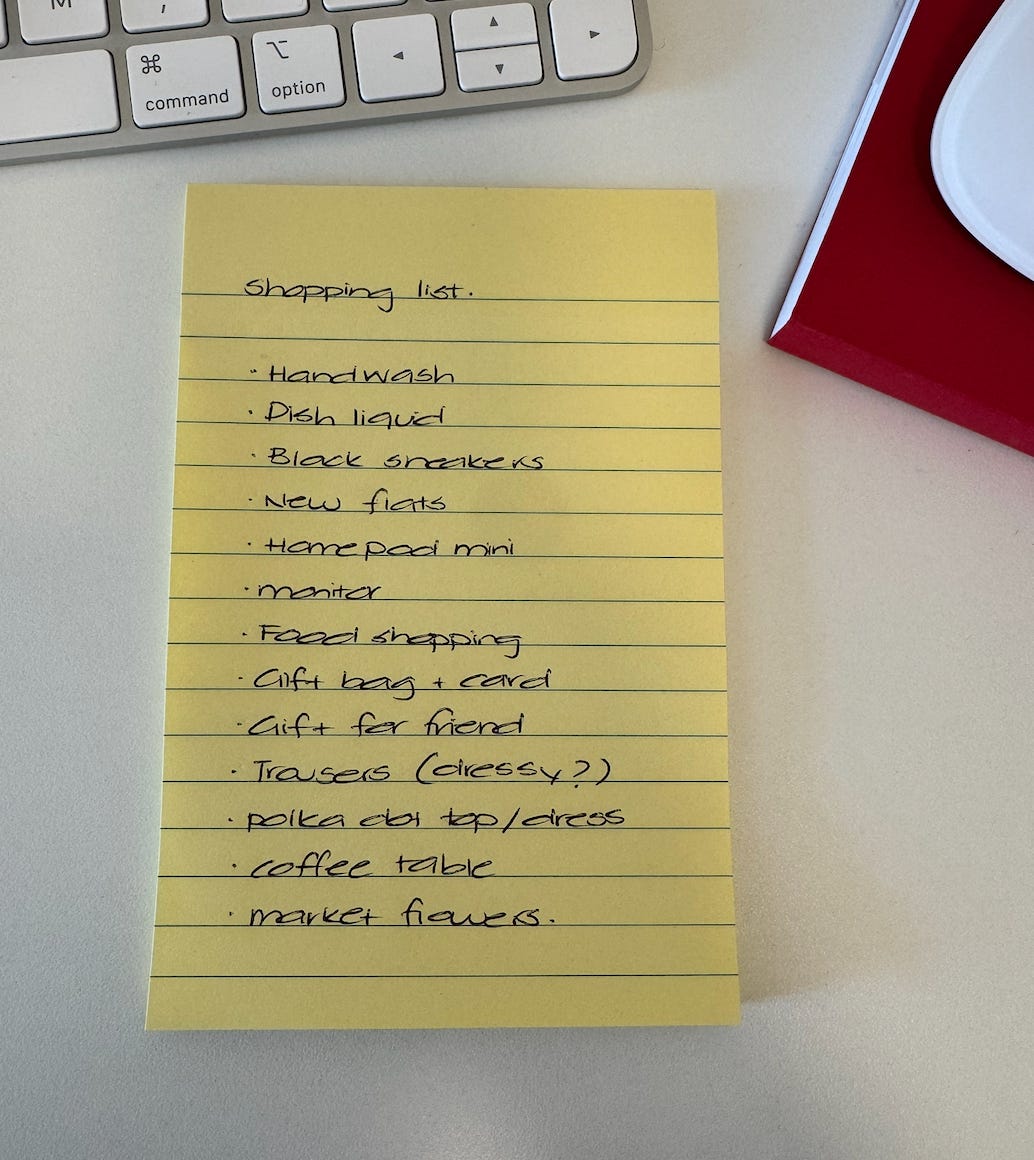 M ,
⌘ ⌥ ◂ ▴ ▾ ▸
command option
Shopping list.
· Handwash
· Dish liquid
· Black sneakers
· New flats
· Homepod mini
· monitor
· Food shopping
· Gift bag + card
· Gift for friend
· Trousers (dressy?)
· polka dot top/dress
· coffee table
· market flowers.